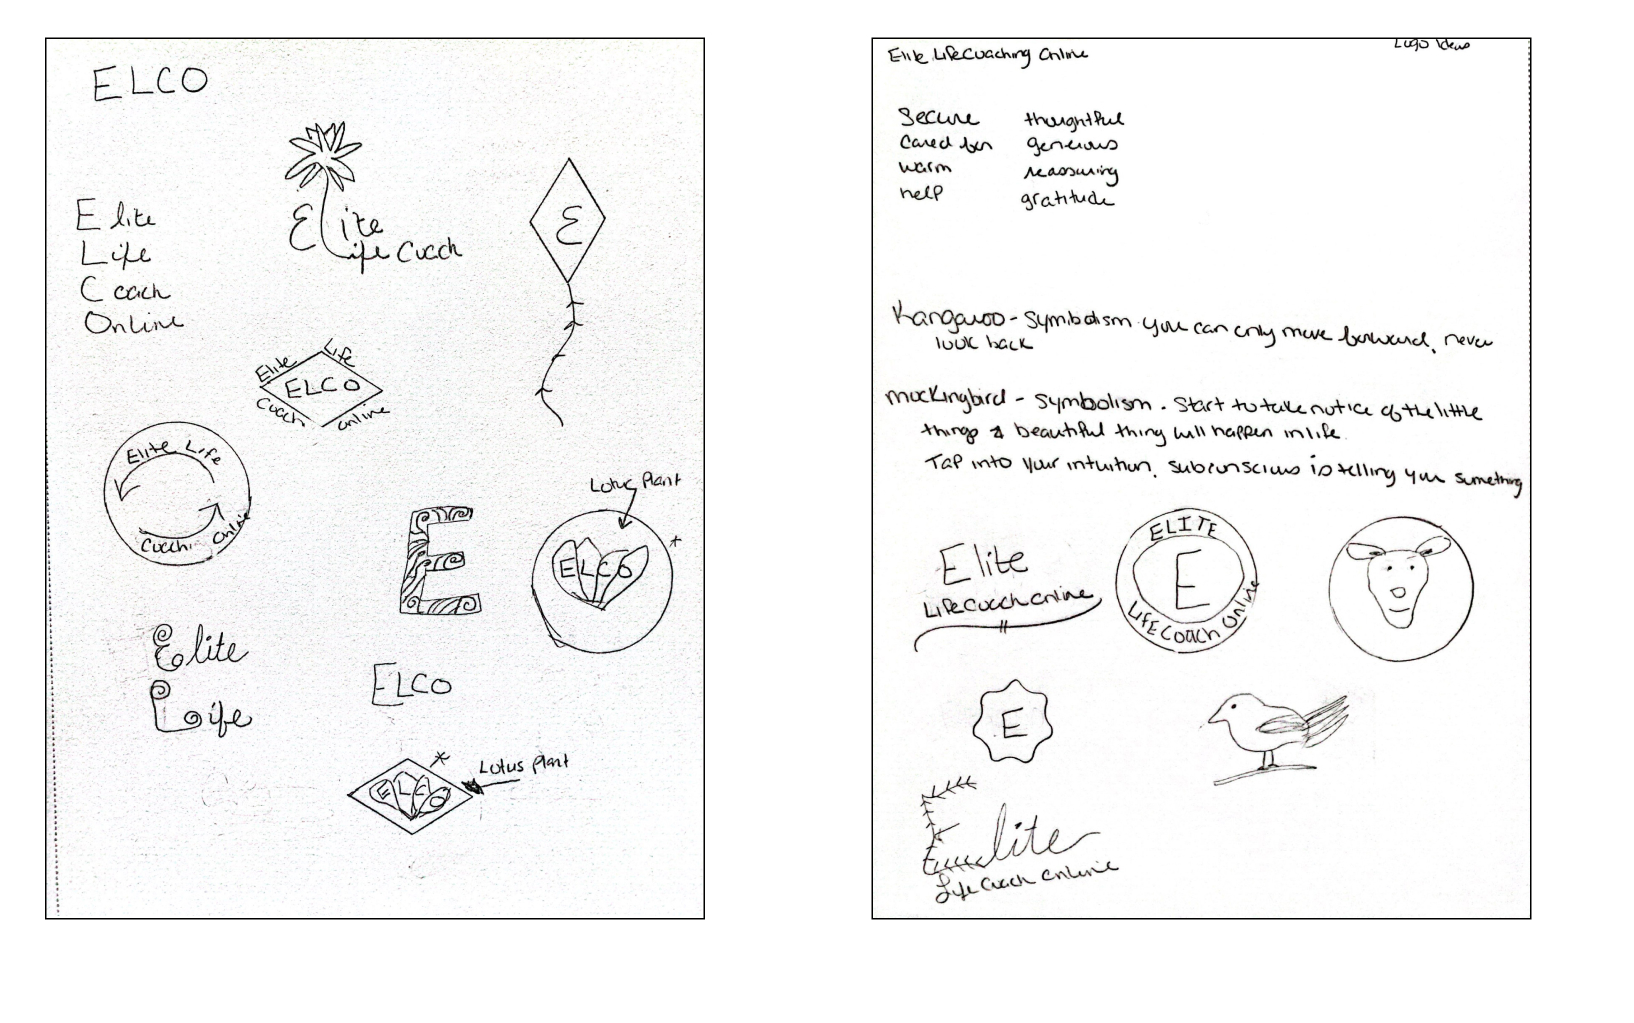 ELCO
Elite
Life
Coach
Online
Elite
Life Coach
E
Elite Life
ELCO
Coach Online
Elite Life
Coach Online
E
Lotus Plant
*
ELCO
Elite
Life
ELCO
*
Lotus Plant
ELCO
Elite LifeCoaching Online
Logo Ideas
Secure thoughtful
Cared for generous
warm reassuring
help gratitude
Kangaroo - Symbolism you can only move forward, never
look back
mockingbird - Symbolism. Start to take notice of the little
things & beautiful thing will happen in life.
Tap into your intuition, subconscious is telling you something
Elite
LifeCoach Online
ELITE
E
LIFE COACH Online
E
Elite
Life Coach Online